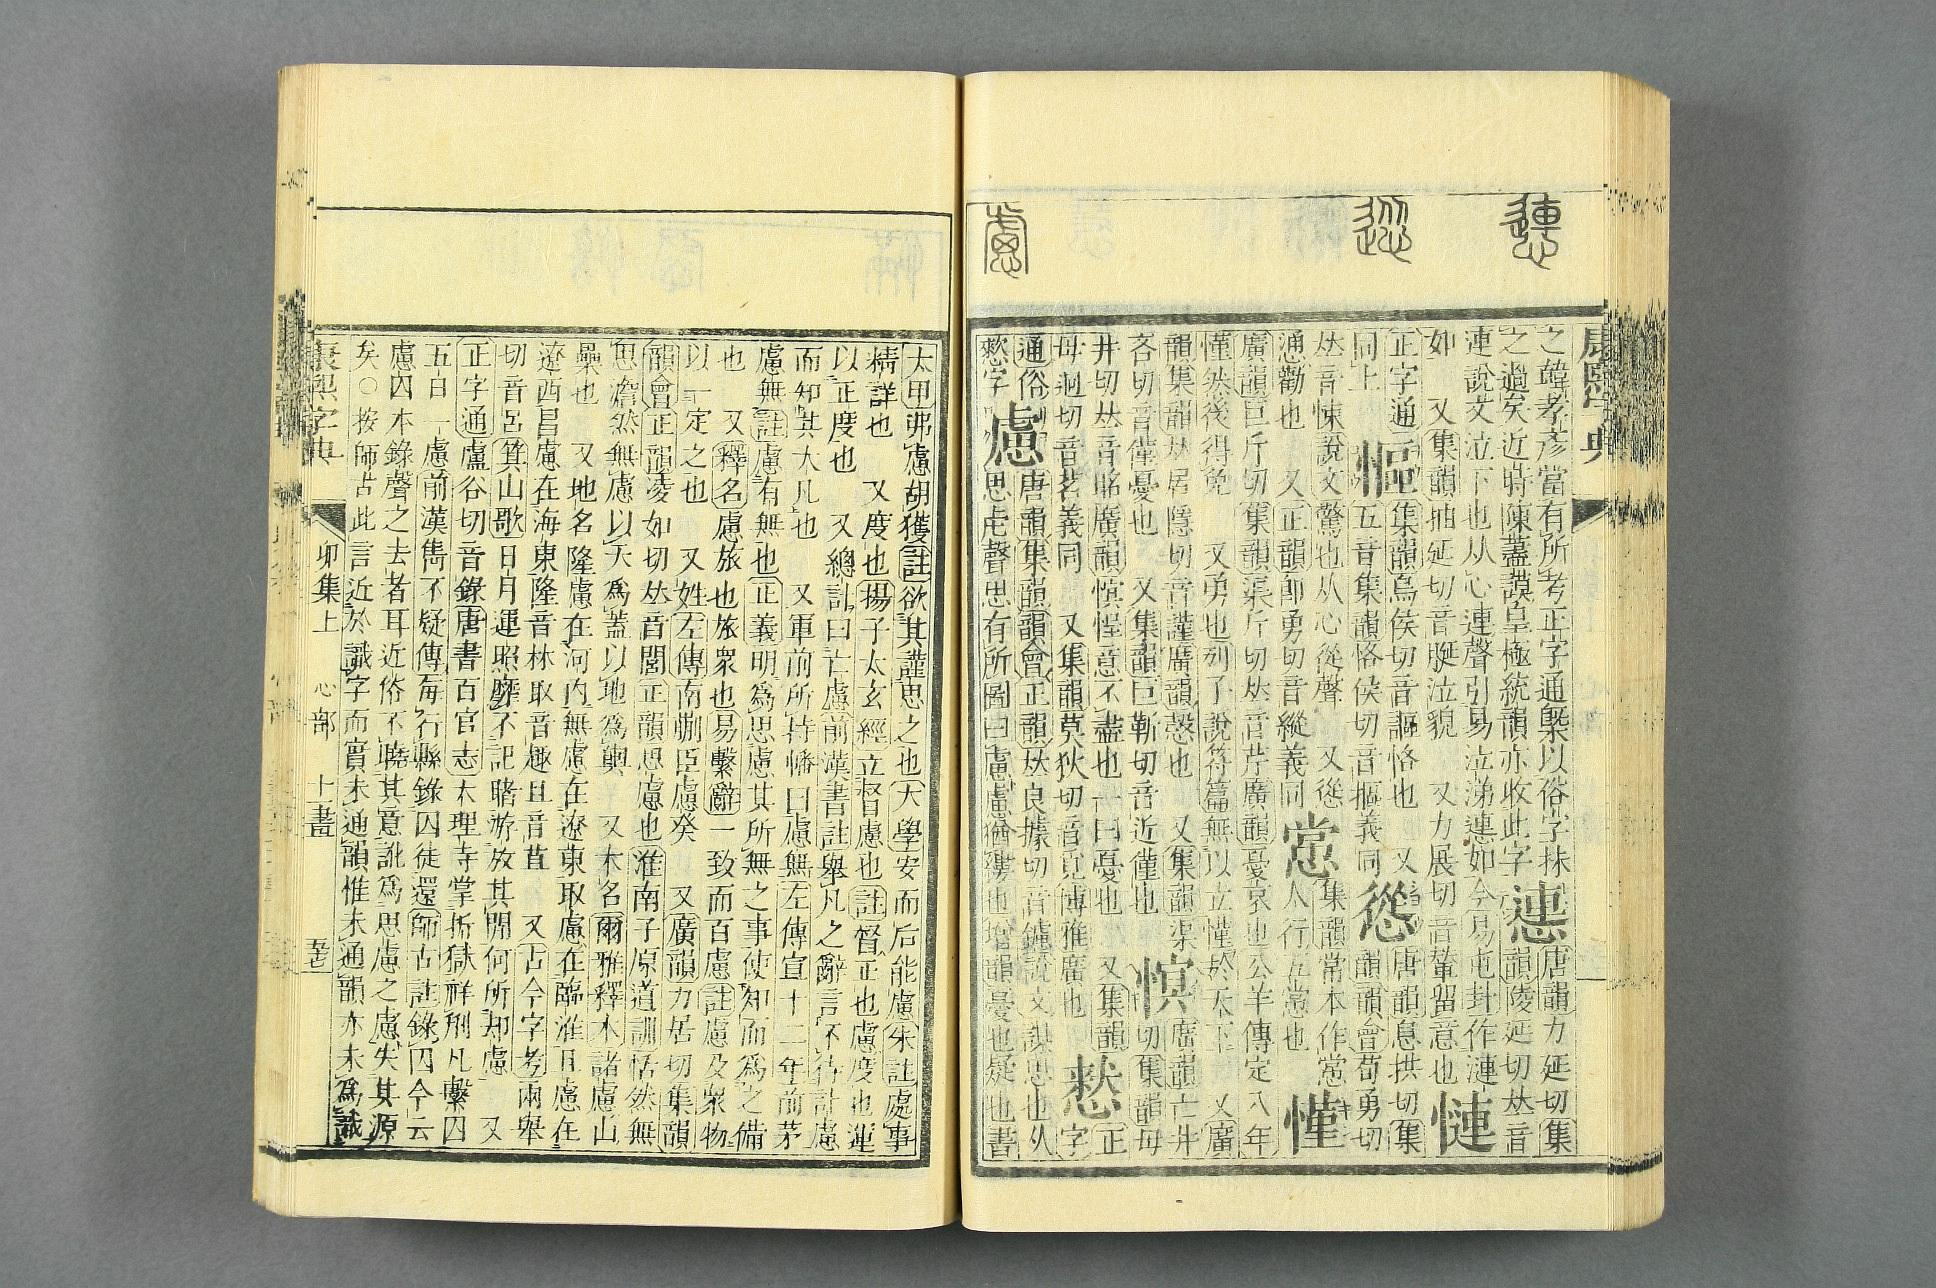 康熙字典
之韓孝彥當有所考正字通槩以俗字抹
之過矣近時陳藎謨皇極統韻亦收此字 𢠬 唐韻力延切集
連說文泣下也从心連聲引易泣涕連如今易屯卦作漣 韻陵延切𠀤音
如 又集韻抽延切音脠泣貌 又力展切音輦留意也 慩
正字通 慪 集韻烏侯切音謳恪也 又 慫 唐韻息拱切集
同上 五音集韻恪侯切音摳義同 韻韻會荀勇切
𠀤音悚說文驚也从心從聲 又慫 集韻常本作常
慂勸也 又正韻卽勇切音縱義同 人行五常也 慬
廣韻巨斤切集韻渠斤切𠀤音芹廣韻憂哀也公羊傳定八年
慬然後得免 又勇也列子說符篇無以立慬於天下 又廣
韻集韻𠀤居隱切音謹廣韻慤也 又集韻渠
吝切音僅憂也 又集韻巨靳切音近僅也 慏 廣韻亡井切集韻母
井切𠀤音眳廣韻慏悜意不盡也一曰憂也 又集韻
母迥切音茗義同 又集韻莫狄切音覓博雅廣也 憗 正字
通俗慭字 慮 唐韻集韻韻會正韻𠀤良據切音鑢說文謀思也从
思虍聲思有所圖曰慮慮猶縷也增韻憂也疑也書
太甲弗慮胡獲註欲其謹思之也大學安而后能慮朱註處事
精詳也 又度也揚子太玄經立督慮也註督正也慮度也運
以正度也 又總計曰亡慮前漢書註舉凡之辭言不待計慮
而知其大凡也 又軍前所持幡曰慮無左傳宣十二年前茅
慮無註慮有無也正義明爲思慮其所無之事使知而爲之備
也 又釋名慮旅也旅衆也易繫辭一致而百慮註慮及衆物
以一定之也 又姓左傳南蒯臣慮癸 又廣韻力居切集韻
韻會正韻凌如切𠀤音閭正韻思慮也淮南子原道訓恬然無
思澹然無慮以天爲蓋以地爲輿 又木名爾雅釋木諸慮山
櫐也 又地名隆慮在河內無慮在遼東取慮在臨淮且慮在
遼西昌慮在海東隆音林取音趣且音苴 又古今字考兩舉
切音呂箕山歌日月運照靡不記睹游放其閒何所却慮 又
正字通盧谷切音錄唐書百官志大理寺掌折獄祥刑凡繫囚
五日一慮前漢雋不疑傳每行縣錄囚徒還師古註錄囚今云
慮囚本錄聲之去者耳近俗不曉其意訛爲思慮之慮失其源
矣○按師古此言近於識字而實未通韻惟未通韻亦未爲識
康熙字典 卯集上 心部 十一畫